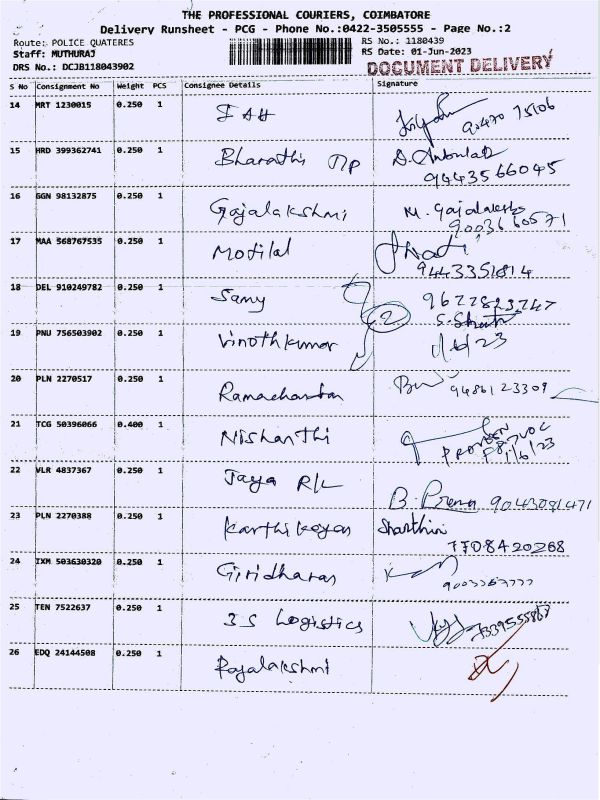 THE PROFESSIONAL COURIERS, COIMBATORE
Delivery Runsheet - PCG - Phone No.:0422-3505555 - Page No.:2
Route: POLICE QUATERES RS No.: 1180439
Staff: MUTHURAJ RS Date: 01-Jun-2023
DRS No.: DCJB118043902 DOCUMENT DELIVERY
S No Consignment No Weight PCS Consignee Details Signature
14 MRT 1230015 0.250 1
90470 75106
15 HRD 399362741 0.250 1 Bharathi
9443566045
16 GGN 98132875 0.250 1 Gajalakshmi M. Gajalakshmi
9003660571
17 MAA 568767535 0.250 1 Motilal
9443351814
18 DEL 910249782 0.250 1 Samy
2
19 PNU 756503902 0.250 1 Vinothkumar 1/6/23
20 PLN 2270517 0.250 1 Ramachandran 9486123309
21 TCG 50396066 0.400 1 Nishanthi
1/6/23
22 VLR 4837367 0.250 1 Jaya R/L
B. Prema 9043081471
23 PLN 2270388 0.250 1 Karthikeyan
7708420268
24 IXM 503630320 0.250 1 Giridharan
25 TEN 7522637 0.250 1 3S Logistics
26 EDQ 24144508 0.250 1 Rajalakshmi